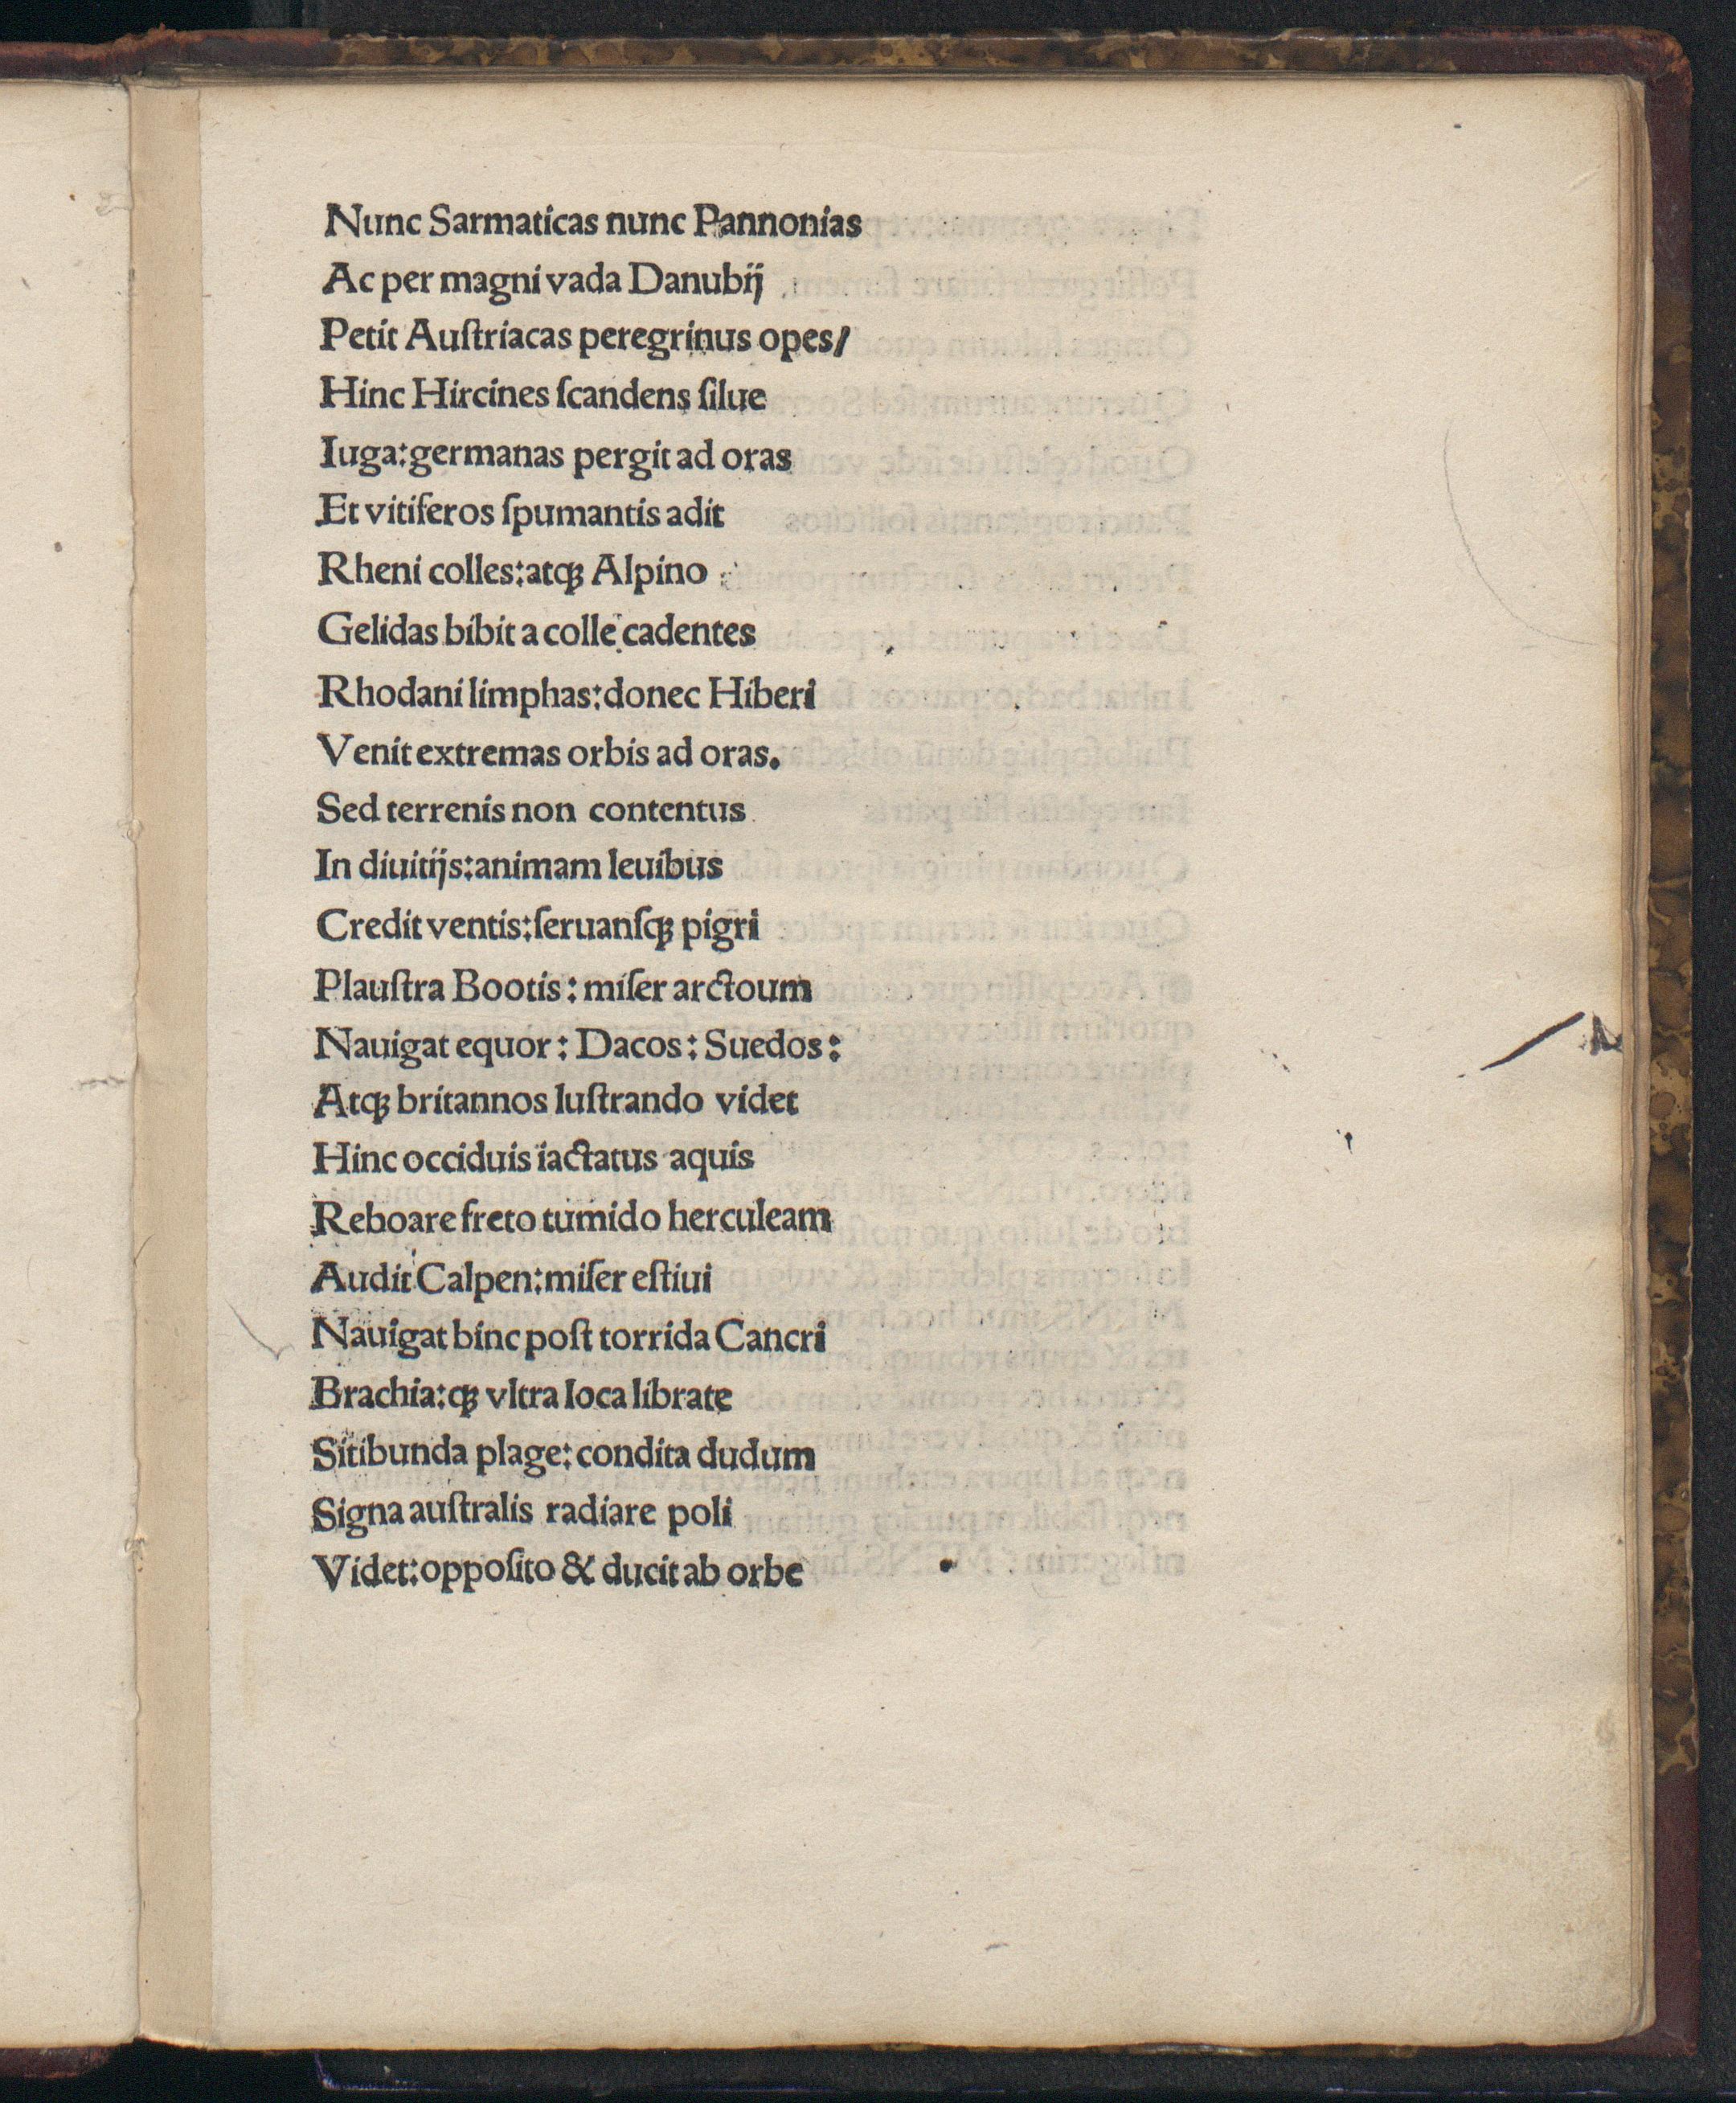 Nunc Sarmaticas nunc Pannonias
Ac per magni vada Danubij
Petit Auſtriacas peregrinus opes/
Hinc Hircines ſcandens ſilue
Iuga:germanas pergit ad oras
Et vitiferos ſpumantis adit
Rheni colles:atqꝫ Alpino
Gelidas bibit a colle cadentes
Rhodani limphas:donec Hiberi
Venit extremas orbis ad oras.
Sed terrenis non contentus
In diuitijs:animam leuibus
Credit ventis:ſeruanſqꝫ pigri
Plauſtra Bootis: miſer arctoum
Nauigat equor: Dacos: Suedos:
Atqꝫ britannos luſtrando videt
Hinc occiduis iactatus aquis
Reboare freto tumido herculeam
Audit Calpen:miſer eſtiui
Nauigat binc poſt torrida Cancri
Brachia:qꝫ vltra loca librate
Sitibunda plage: condita dudum
Signa auſtralis radiare poli
Videt:oppoſito & ducit ab orbe